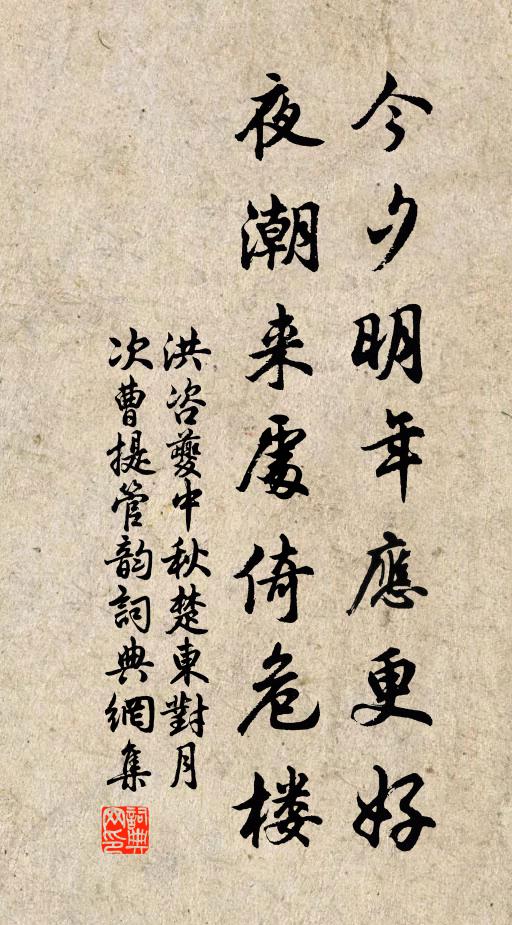 今夕明年應更好
夜潮来處倚危楼
洪咨夔中秋楚東對月
次曹提管韵詞典網集
詞典網印